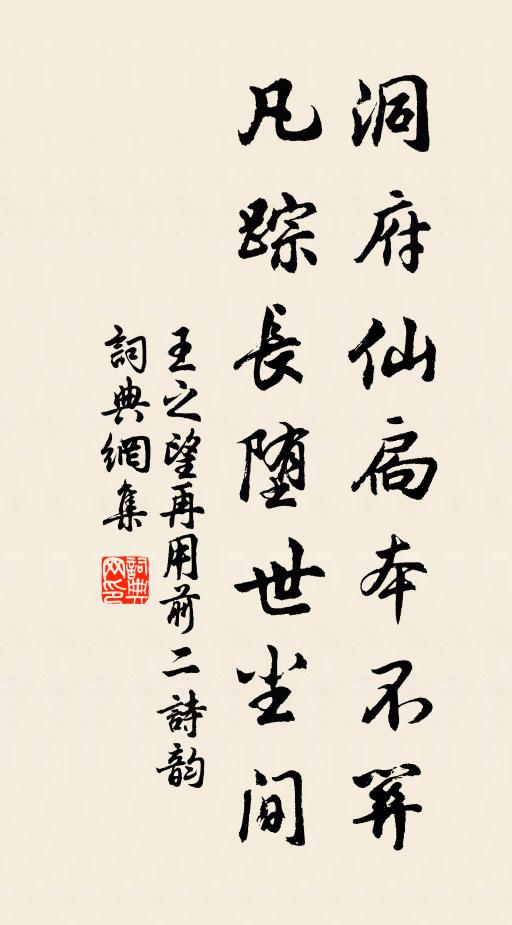 洞府仙扃本不关
凡踪長堕世尘间
王之望再用前二詩韵
詞典網集
詞典网印